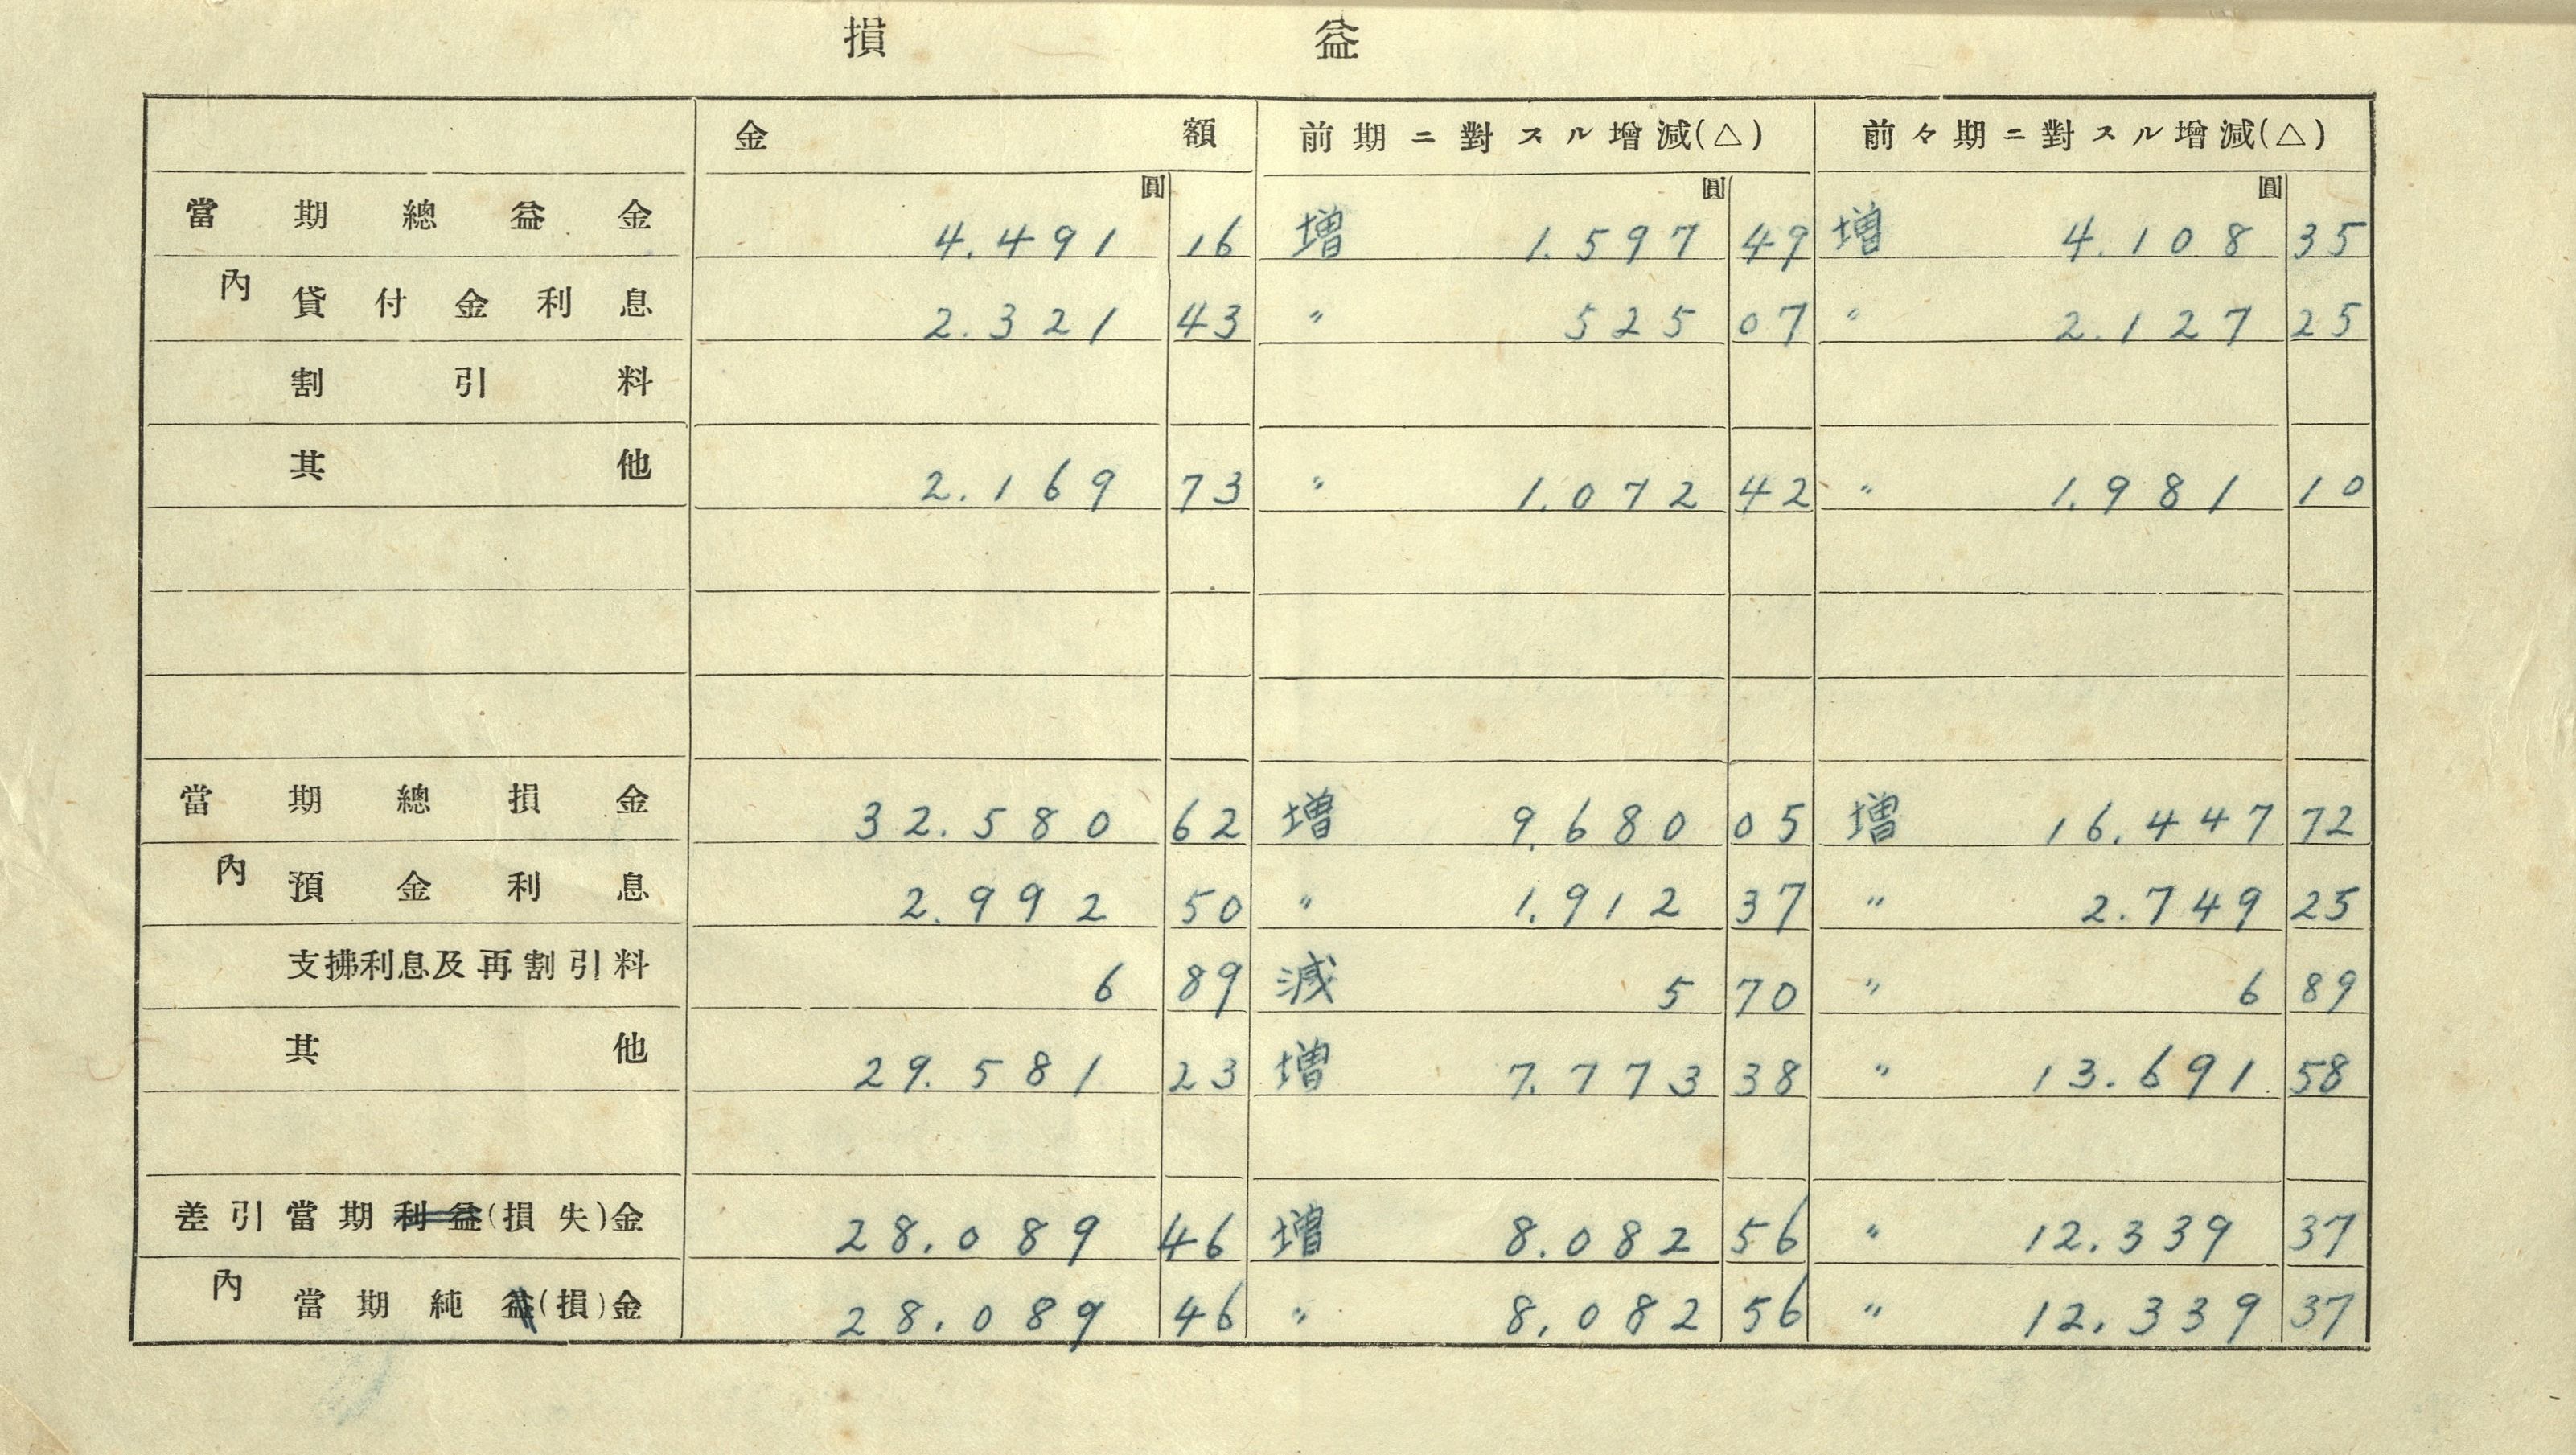 損益
金額 前期ニ對スル增減(△) 前々期ニ對スル增減(△)
圓 圓 圓
當期總益金 4.491 16 増 1.597 49 増 4.108 35
內 貸付金利息 2.321 43 〃 525 07 〃 2.127 25
割引料
其他 2.169 73 〃 1.072 42 〃 1.981 10
當期總損金 32.580 62 増 9.680 05 増 16.447 72
內 預金利息 2.992 50 〃 1.912 37 〃 2.749 25
支拂利息及再割引料 6 89 減 5 70 〃 6 89
其他 29.581 23 増 7.773 38 〃 13.691 58
差引當期利益(損失)金 28.089 46 増 8.082 56 〃 12.339 37
內 當期純益(損)金 28.089 46 〃 8.082 56 〃 12.339 37